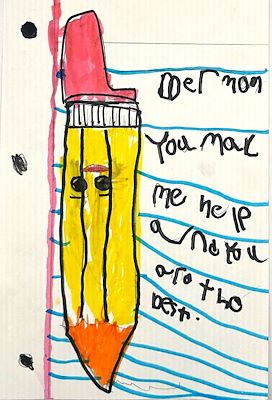 Der mom
You mak
me help
and you
are the
best.